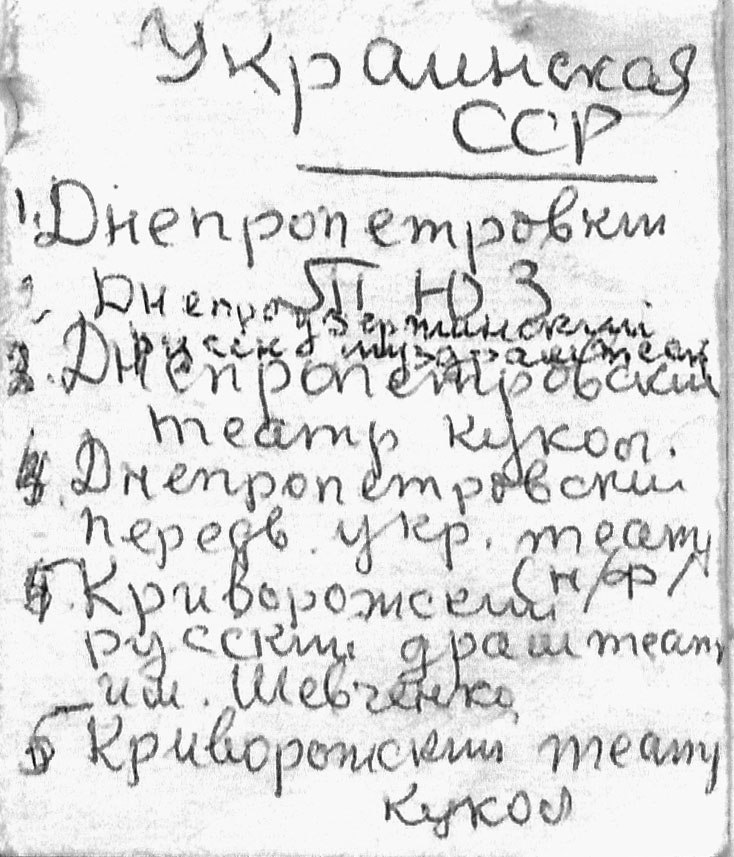 Украинская
ССР
1. Днепропетровкий
ТЮЗ
2. Днепродзержинский
русск муздрамтеат
3. Днепропетровский
театр кукол.
4. Днепропетровский
передв. укр. театр
(н/ф/
5. Криворожский
русский драмтеатр
им. Шевченко
Криворожский театр
кукол